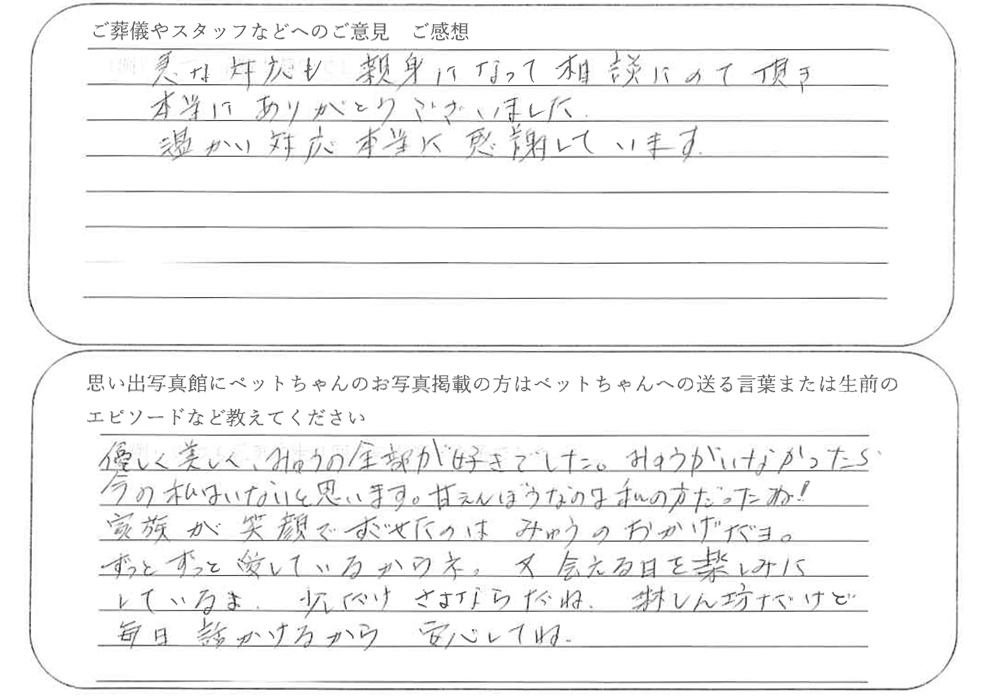 ご葬儀やスタッフなどへのご意見　ご感想
急な対応も 親身になって相談にのて頂き
本当にありがとうございました.
温かい対応本当に感謝しています.
思い出写真館にペットちゃんのお写真掲載の方はペットちゃんへの送る言葉または生前の
エピソードなど教えてください
優しく美しく、みゅうの全部が好きでした。みゅうがいなかったら
今の私はいないと思います。甘えんぼうなのは私の方だったね!
家族が笑顔ですごせたのは みゅうのおかげだヨ。
ずっとずっと愛しているからネ。又会える日を楽しみに
しているよ. 少しだけ さよならだね. 淋しん坊だけど
毎日話かけるから 安心してね.